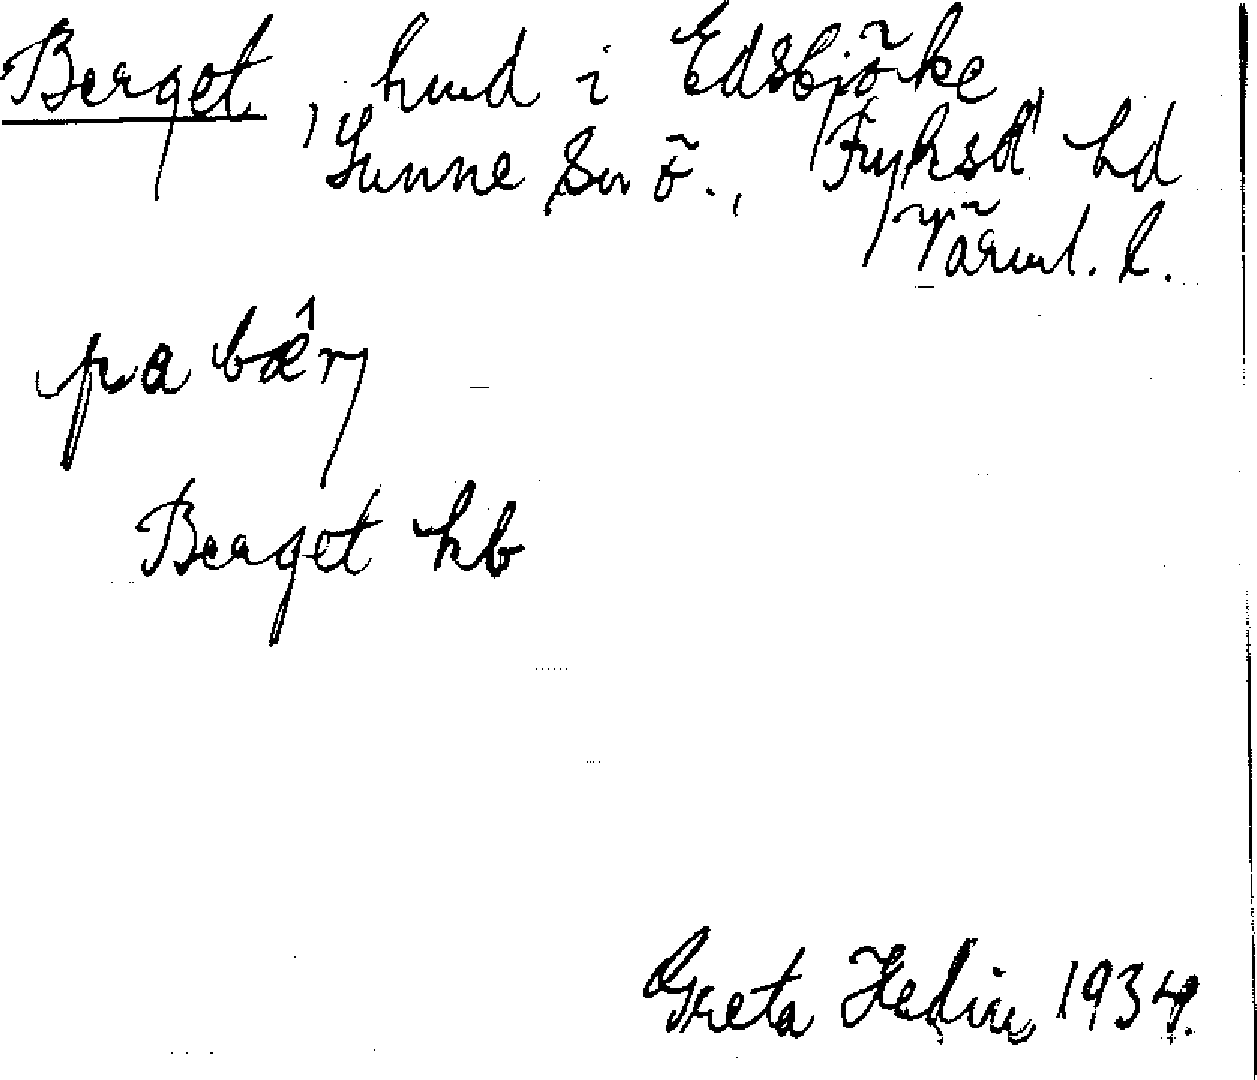 Berget, hmd i Edsbjörke,
Sunne sn ö., Fryksd hd
Värml. l.
pa bæ̂r
Berget hb
Greta Hedin 1934.